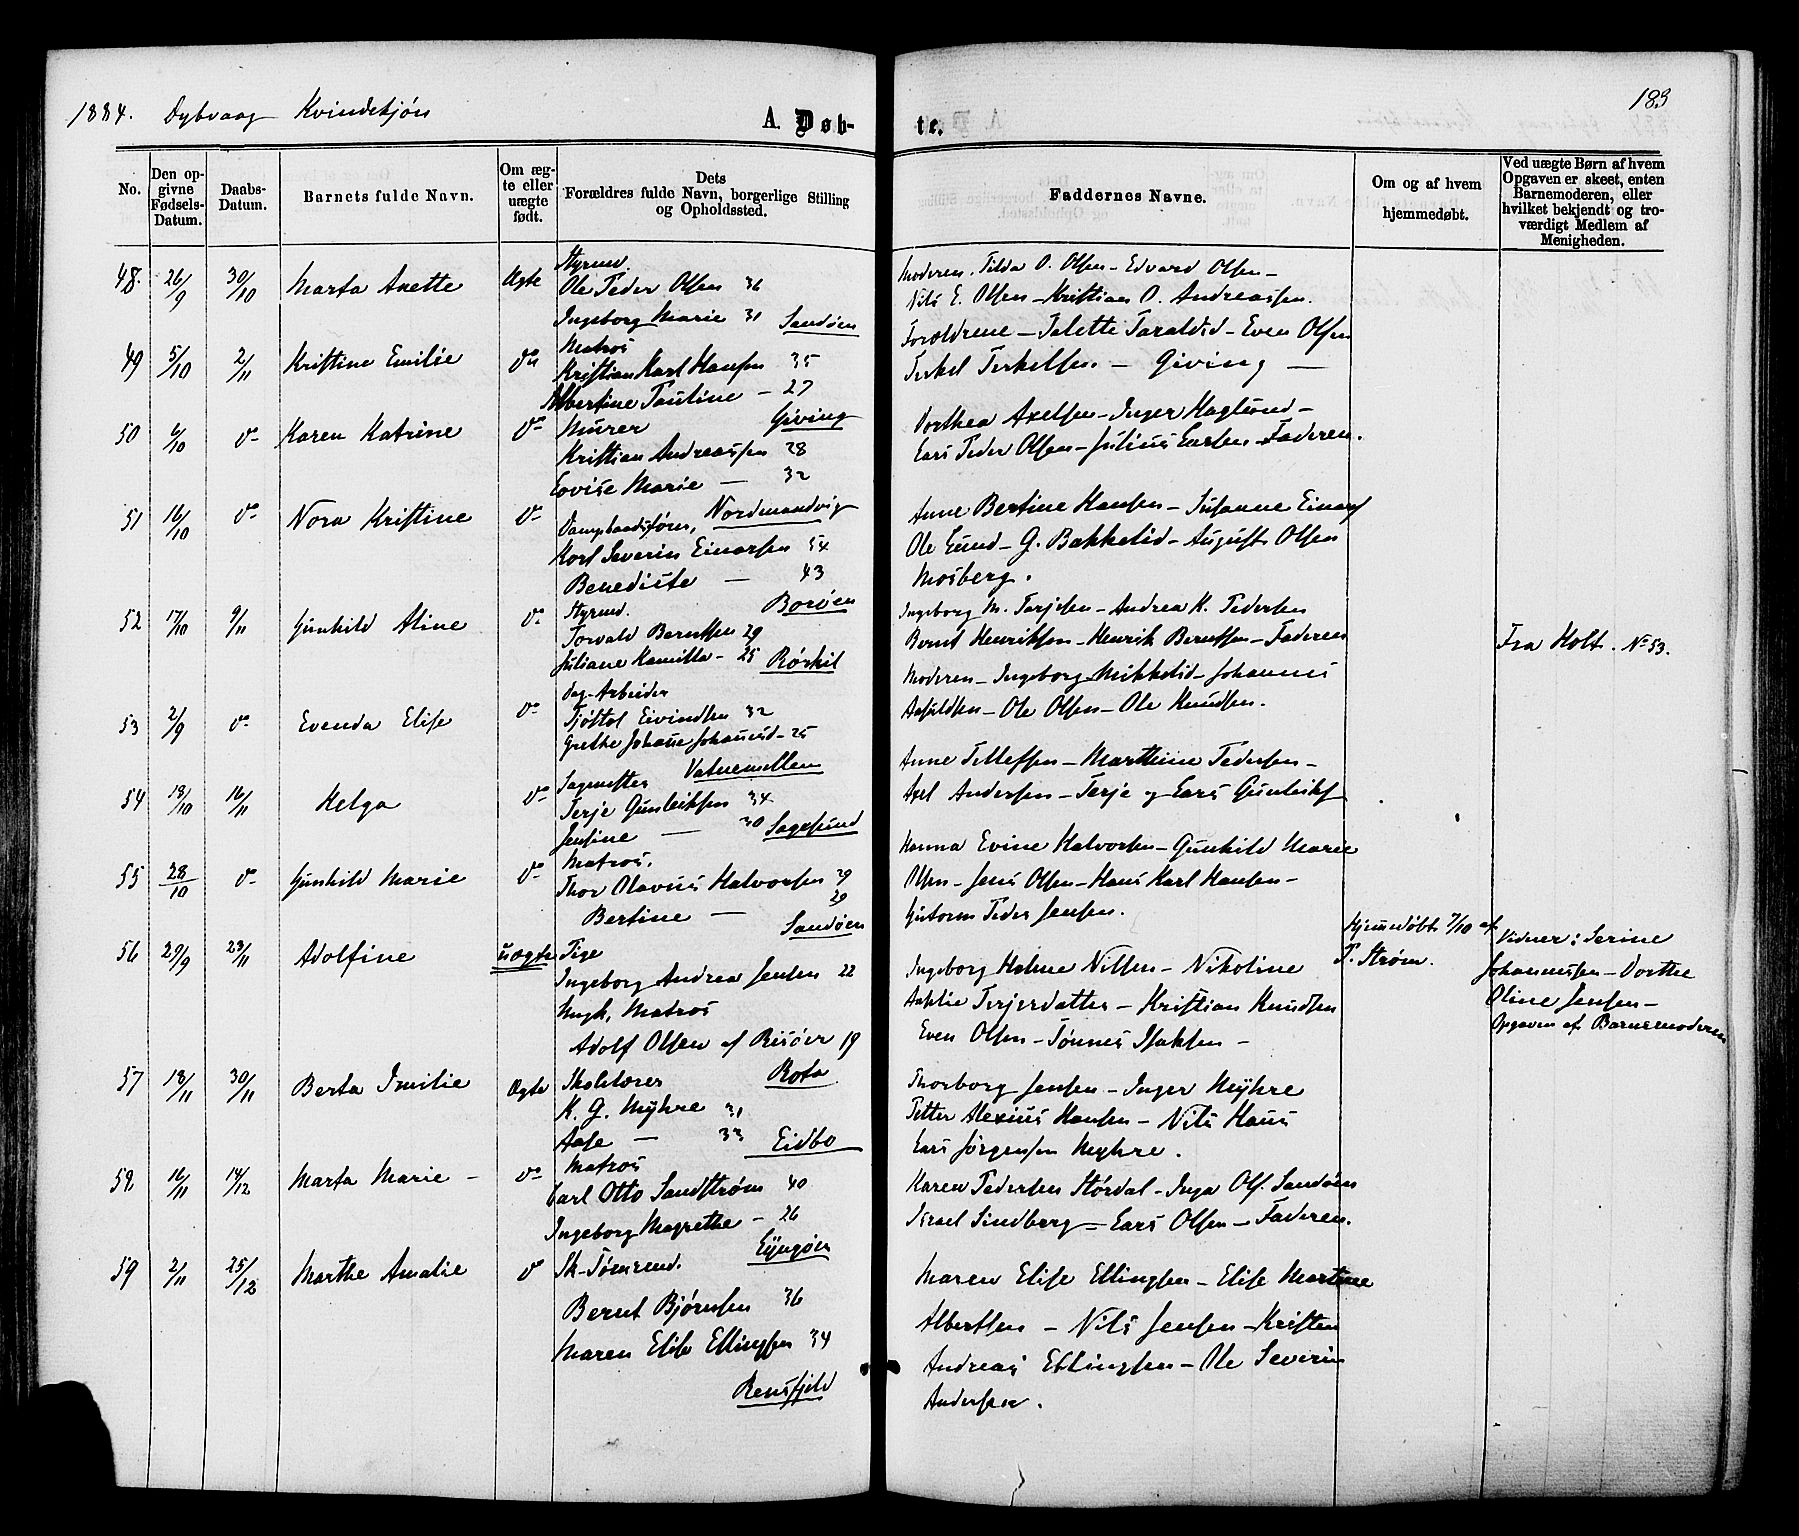 1884. Dybvaag Kvindekjøn
A. Døbte.
183
No.
Den opgivne Fødsels-Datum.
Daabs-Datum.
Barnets fulde Navn.
Om ægte eller uægte født.
Dets Forældres fulde Navn, borgerlige Stilling og Opholdssted.
Faddernes Navne.
Om og af hvem hjemmedøbt.
Ved uægte Børn af hvem Opgaven er skeet, enten Barnemoderen, eller hvilket bekjendt og troværdigt Medlem af Menigheden.
48. 26/9 30/10 Marta Anette Ægte
Styrmd.
Ole Peder Olsen 36
Ingeborg Marie 31 Sandøen
Moderen. Tilda O. Olsen - Edvard Olsen -
Nils E. Olsen - Kristian O. Andreassen.
49 5/10 2/11 Kristine Emilie Do
Matros
Kristian Karl Hansen 35
Albertine Pauline - 27
Giving
Forældrene - Talette Taraldsd - Even Olsen
Terkel Terkelsen. - Giving -
50 6/10 Do Karen Katrine Do
Murer
Kristian Andreassen 28
Lovise Marie - 32
Nordmandvig
Dorthea Axelsen - Inger Haglund -
Lars Peder Olsen - Julius Larsen - Faderen.
51 16/10 Do Nora Kristine Do
Karl Severin Einarsen 54
Benedicte - 43
Borøen
Anne Bertine Hansen - Susanne Einars
Ole Lund - G. Bakkelid - August Olsen
Mosberg.
52 17/10 9/11 Gunhild Aline Do
Styrmd.
Torvald Berntsen 29
Juliane Kamilla - 25 Rørkil
Ingeborg M. Terjesen - Andrea K. Pedersen
Bernt Henriksen - Henrik Berntsen - Faderen
53 2/9 Do Evenda Elise Do
Dag-Arbeider
Tjøstol Eivindsen 32
Grethe Johanne Johannesd - 25
Vatnemillen
Moderen - Ingeborg Mikkelsd - Johannes
Aasuldsen - Ole Olsen - Ole Knudsen.
Fra Holt. No 53.
54 18/10 16/11 Helga Do
Sagmester
Terje Gunleiksen 34
Jensine - 30 Sagesund
Anne Tellefsen - Marthine Pedersen -
Axel Andersen - Terje og Lars Gunleiks
55 28/10 Do Gunhild Marie Do
Matros.
Thor Olavus Halvorsen 29
Bertine - 29
Sandøen
Hanna Evine Halvorsen - Gunhild Marie
Olsen - Jens Olsen - Hans Karl Hansen -
Gutorm Peder Jensen.
56 29/9 23/11 Adolfine uægte
Pige
Ingeborg Andrea Jensen 22
Ungk. Matros
Adolf Olsen af Risøer 19
Rota
Ingeborg Helene Nilsen - Nikoline
Terjesdatter - Kristian Knudsen
Even Olsen - Tønnes Isaksen -
Hjemmedøbt 7/10 af
P. Strøm.
Vidner: Serine
Johannessen - Dorthe
Oline Jensen -
Opgaven af Barnemoderen
57 18/11 30/11 Berta Emilie Ægte
Skolelærer
K. G. Myhre 31
Aase - 33 Eidbo
Thorborg Jensen - Inger Myhre
Petter Alexius Hansen - Nils Haus
Lars Jørgensen Myhre.
58 16/11 14/12 Marta Marie - Do
Matros
Carl Otto Sandstrøm 40
Ingeborg Magrethe - 26
Lyngøen
Karen Pedersen Størdal - Inga Ols. Sandøen
Israel Lindberg - Lars Olsen - Faderen.
59 2/11 25/12 Marthe Amalie Do
Sk-Tømrmd.
Bernt Bjørnsen 36
Maren Elise Ellingsen 34
Rensfjeld
Maren Elise Ellingsen - Elise Martine
Albertsen - Nils Jensen - Kristen
Andreas Ellingsen - Ole Severin
Andersen.